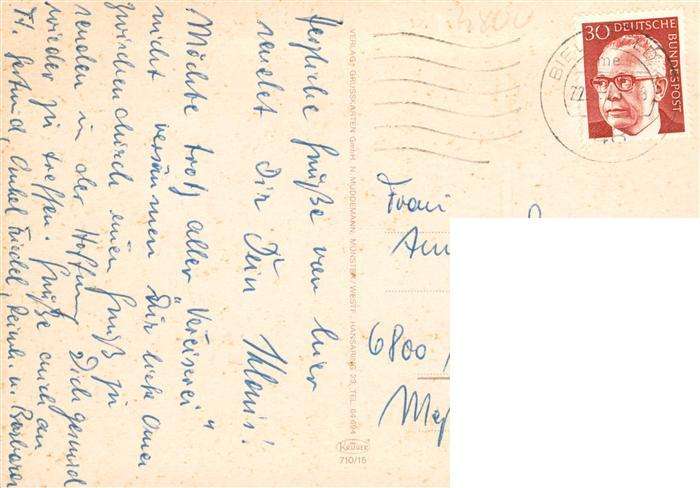 Herzliche Grüße von hier
sendet Dir Dein Klaus!
Möchte trotz aller „Vereiserei“
nicht versäumen Dir liebe Oma
zwischendurch einen Gruß zu
senden in der Hoffnung Dich gesund
wieder zu treffen. Grüße auch an
Onkel Friedel, u. Barbara
VERLAG: GRUSSKARTEN GmbH. N. MÜDDEMANN, MÜNSTER/WESTF. HANSARING 23, TEL. 64094
KRÜGER
710/16
30 DEUTSCHE BUNDESPOST
BIEL
Frau
6800